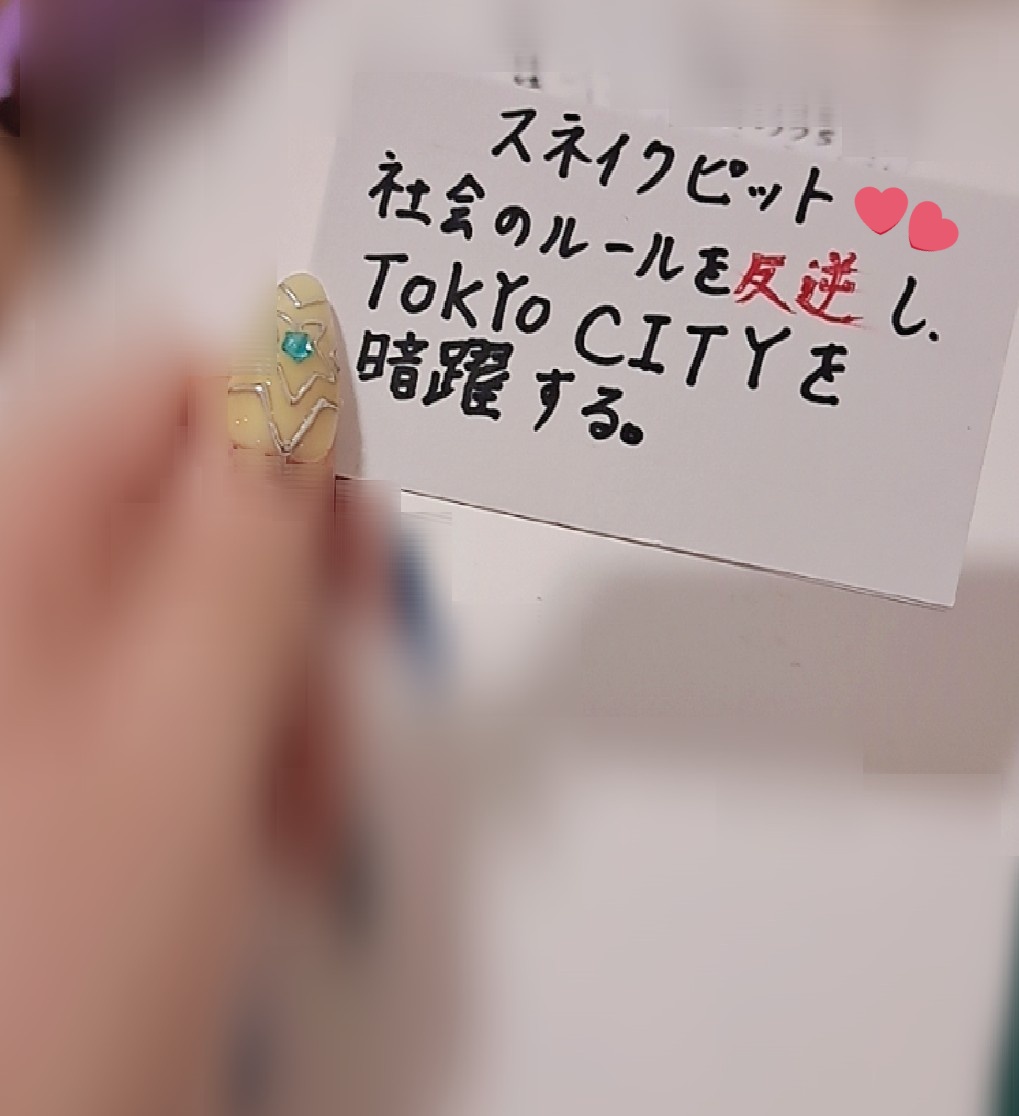 スネイクピット
社会のルールを反逆し、
TOKYO CITYを
暗躍する。